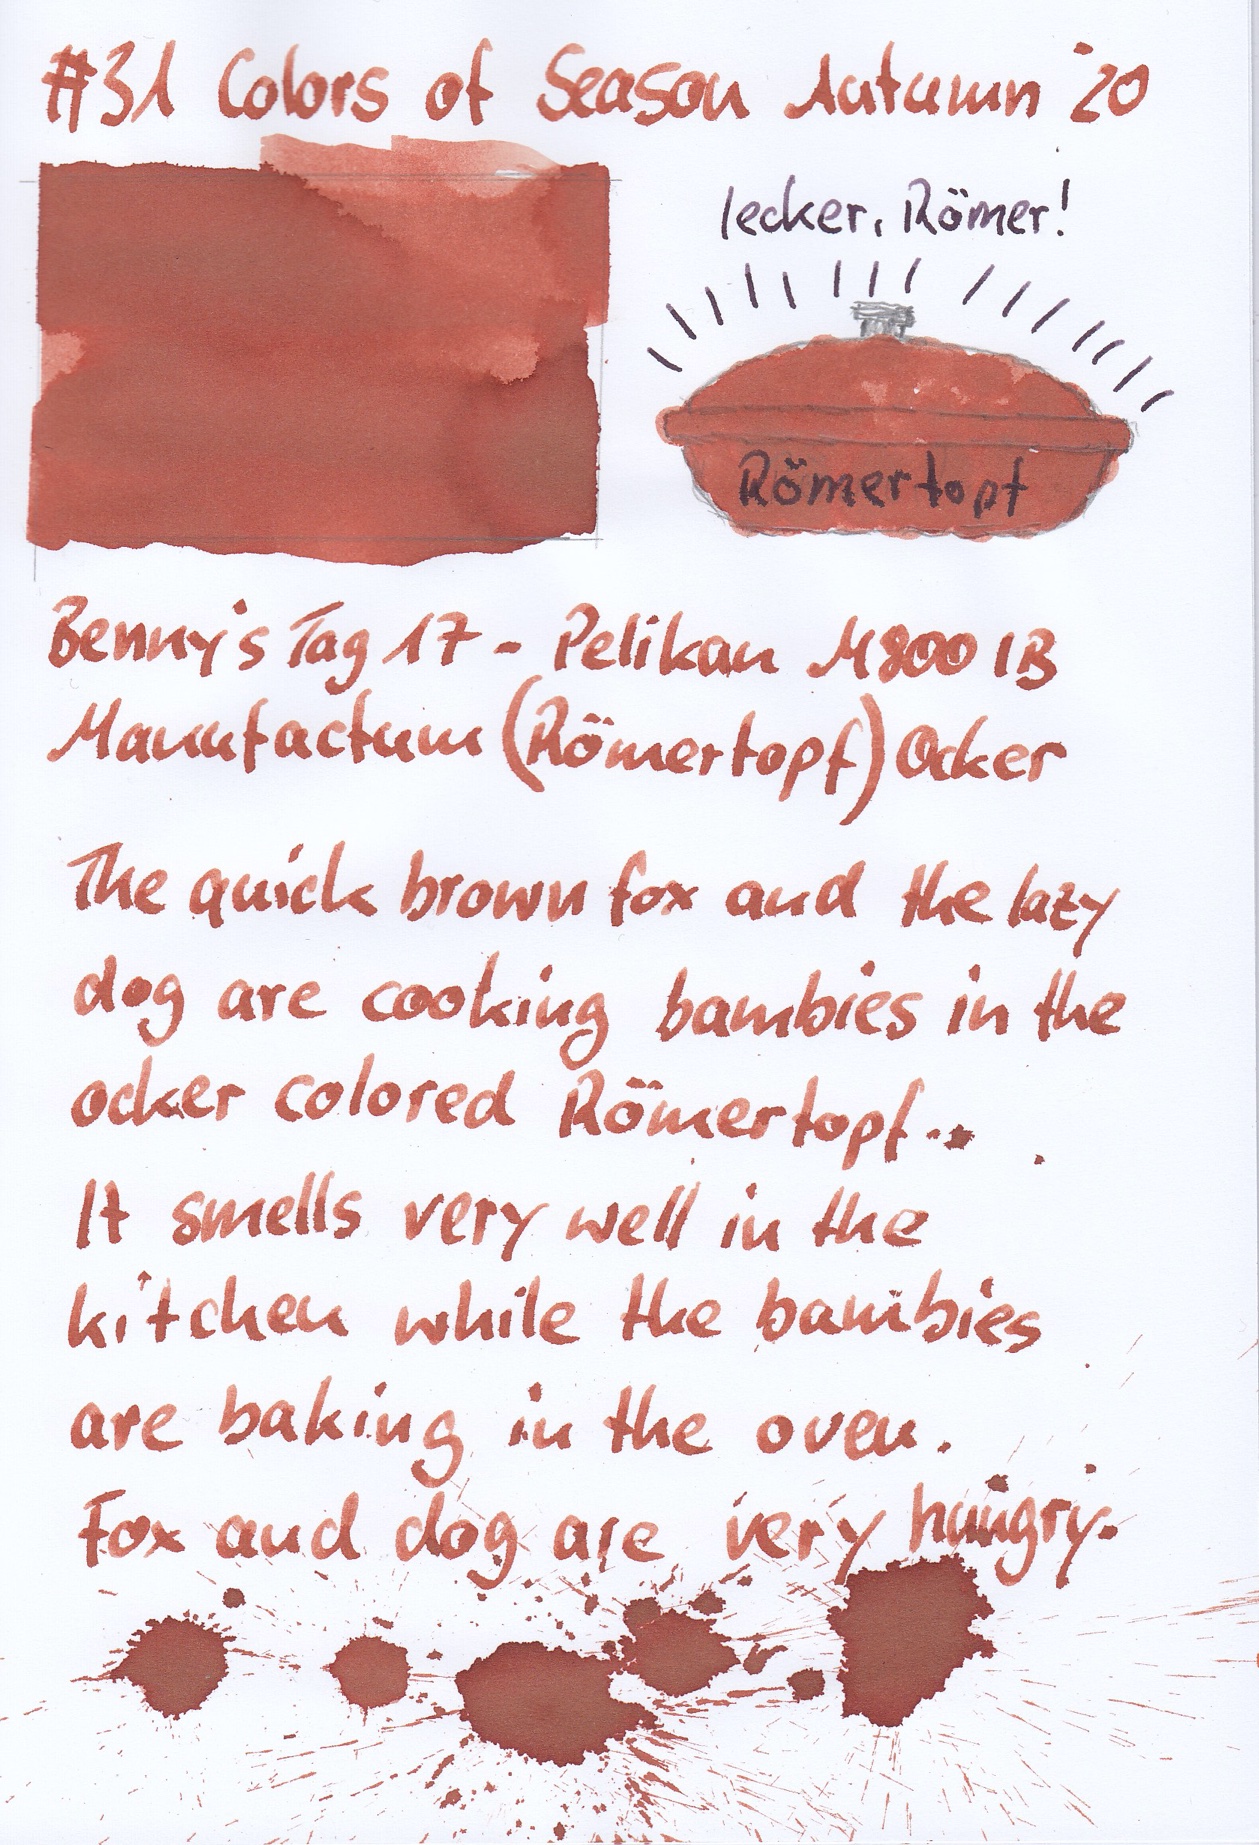 #31 Colors of Season Autumn '20
lecker, Römer!
Römertopf
Benny's Tag 17 - Pelikan M800 IB
Manufactum (Römertopf) Ocker
The quick brown fox and the lazy
dog are cooking bambies in the
ocker colored Römertopf...
It smells very well in the
kitchen while the bambies
are baking in the oven.
Fox and dog are very hungry.